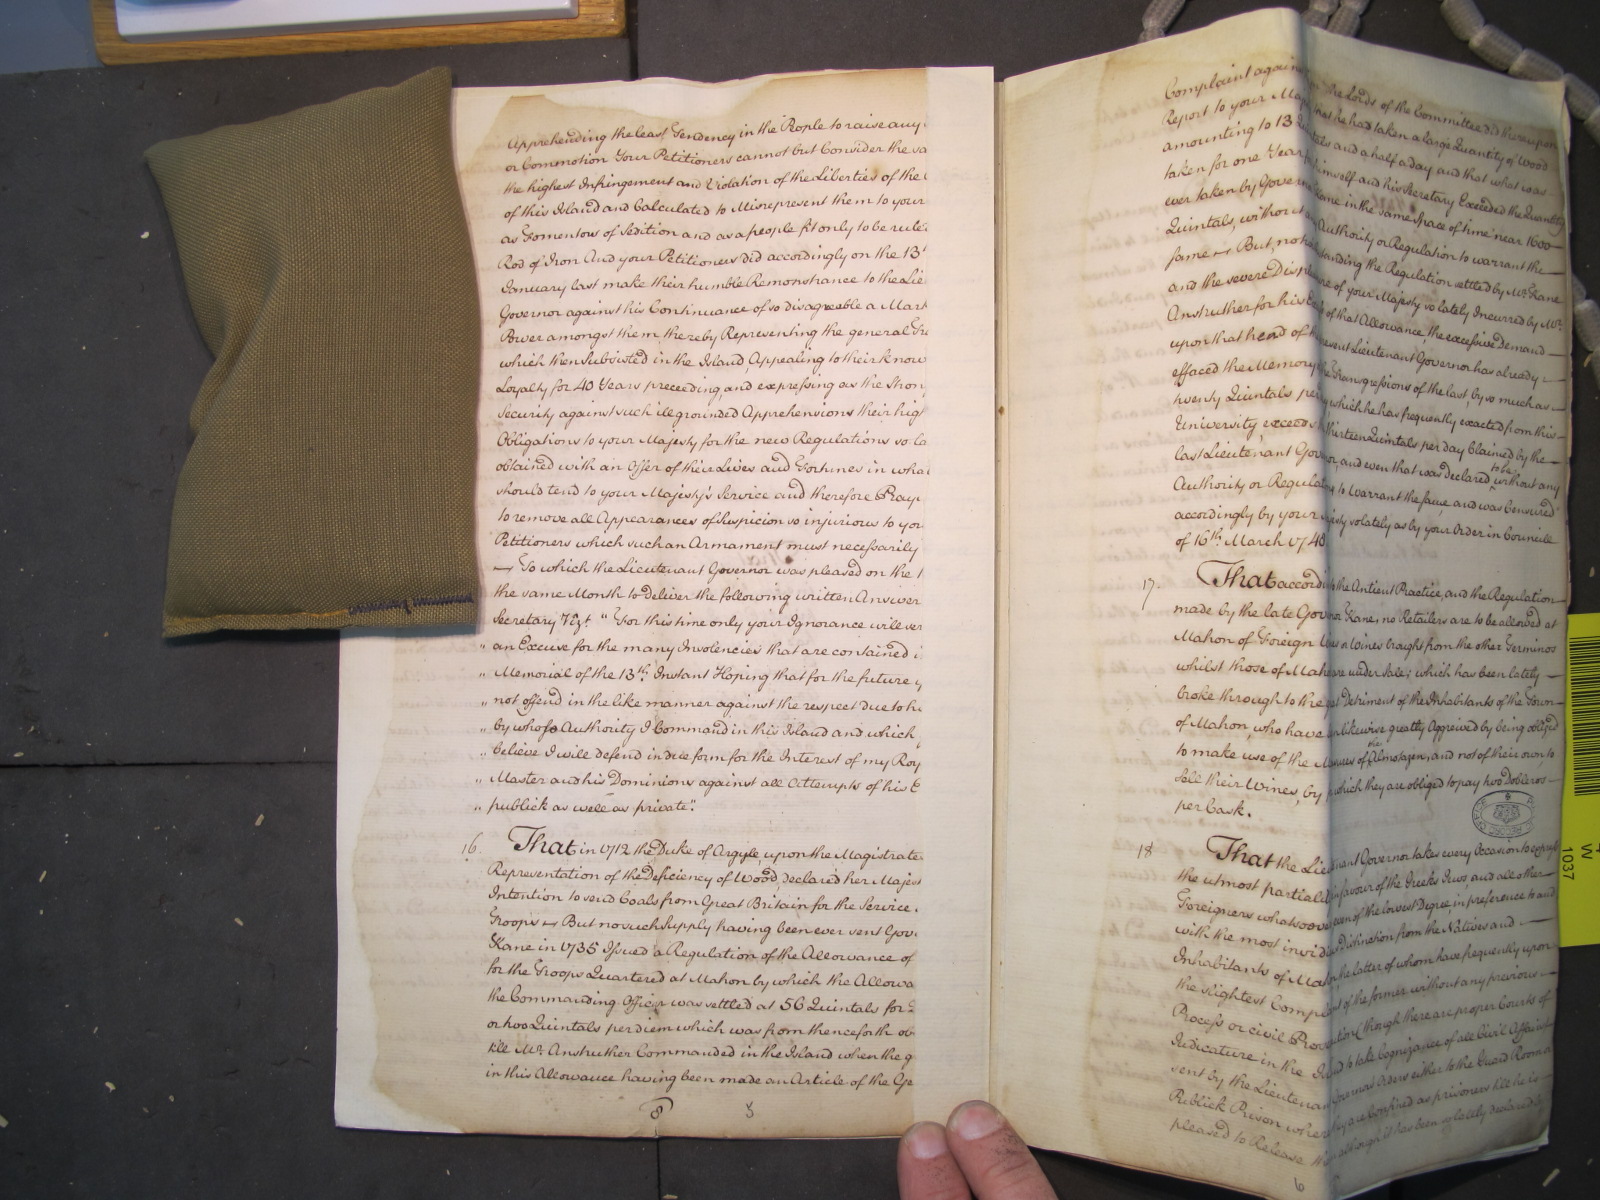 Apprehending the least Tendency in the People to raise any
or Commotion Your Petitioners cannot but Consider the sa
the highest Infringement and Violation of the Liberties of the
of this Island and Calculated to Misrepresent them to your
as Fomentors of Sedition and as a people fit only to be rule
Rod of Iron And your Petitioners did accordingly on the 13
January last make their humble Remonstrance to the Lie
Governor against his Continuance of so disagreable a Mark
Power amongst them thereby Representing the general
which then Subsisted in the Island, Appealing to their know
Loyalty for 40 Years preceeding, and expressing as the Stron
Security against such ill grounded Apprehensions their hig
Obligations to your Majesty for the new Regulations so la
obtained with an Offer of their Lives and Fortunes in what
should tend to your Majesty's Service and therefore Pray
to remove all Appearances of Suspicion so injurious to yor
Petitioners which such an Armament must necessarily
— To which the Lieutenant Governor was pleased on the 1
the same Month to deliver the following written Answer
Secretary Vizt. " For this time only your Ignorance will ser
" an Excuse for the many Insolencies that are contained i
" Memorial of the 13th. Instant Hoping that for the future y
" not offend in the like manner against the respect due to h
" by whose Authority I Command in this Island and which
" believe I will defend in due form for the Interest of my Roy
" Master and his Dominions against all Attempts of his E
" publick as well as private".
16. That in 1712 the Duke of Argyle upon the Magistrate
Representation of the Deficiency of Wood, declared her Majest
Intention to send Coals from Great Britain for the Service
Troops — But no such Supply having been ever sent Gov
Kane in 1735 Issued a Regulation of the Allowance of
for the Troops Quartered at Mahon by which the Allowa
the Commanding Officer was settled at 56 Quintals for
or two Quintals per diem which was from thenceforth ob
till Mr. Anstruther Commanded in the Island when the g
in this Allowance having been made an Article of the Ge
8
Complaint again the Lords of the Committee did thereupon
Report to your Ma he had taken a large Quantity of Wood
amounting to 13 Quintals and a half a day and that what was
taken for one Year himself and his Secretary Exceeded the Quantity
ever taken by Gover Kane in the same Space of time near 1600
Quintals, without Authority or Regulation to warrant the
same — But, not standing the Regulation settled by Mr. Kane
and the severe Displeasure of your Majesty so lately Incurred by Mr.
Anstruther for his of that Allowance, the excessive Demand
upon that head of present Lieutenant Governor has already
effaced the Memory the Transgressions of the last, by so much as
twenty Quintals per which he has frequently exacted from this
University, exceeds thirteen Quintals per day Claimed by the
last Lieutenant Governor, and even that was declared to be without any
Authority or Regulation to warrant the same and was Censured
accordingly by your so lately as by your Order in Councill
of 16th. March 1740
17. That accord the Antient Practice, and the Regulation
made by the late Governor Kane, no Retailers are to be allowed at
Mahon of Foreign Wines brought from the other Terminos
whilst those of Mahon are under Sale; which has been lately
broke through to the Detriment of the Inhabitants of the Town
of Mahon who have likewise greatly Aggrieved by being obliged
to make use of the of the Almotazen, and not of their own to
sell their Wines, by which they are obliged to pay two Dobleros
per Cask.
18 That the Lieutenant Governor takes every Occasion to
the utmost partiality in favour of the Greeks Jews, and all other
Foreigners whatsoever even of the lowest Degree, in preference to and
with the most invidious Distinction from the Natives and
Inhabitants of Mahon, the latter of whom have frequently upon
the slightest Complaint of the former without any previous
Process or civil (though there are proper Courts of
Judicature in the to take Cognizance of all Civil Affairs
sent by the Lieutenant Governors Orders either to the Guard Room or
Publick Prison where they are Confined as prisoners till he is
pleased to Release although it has been so lately declared by
6
W
1037